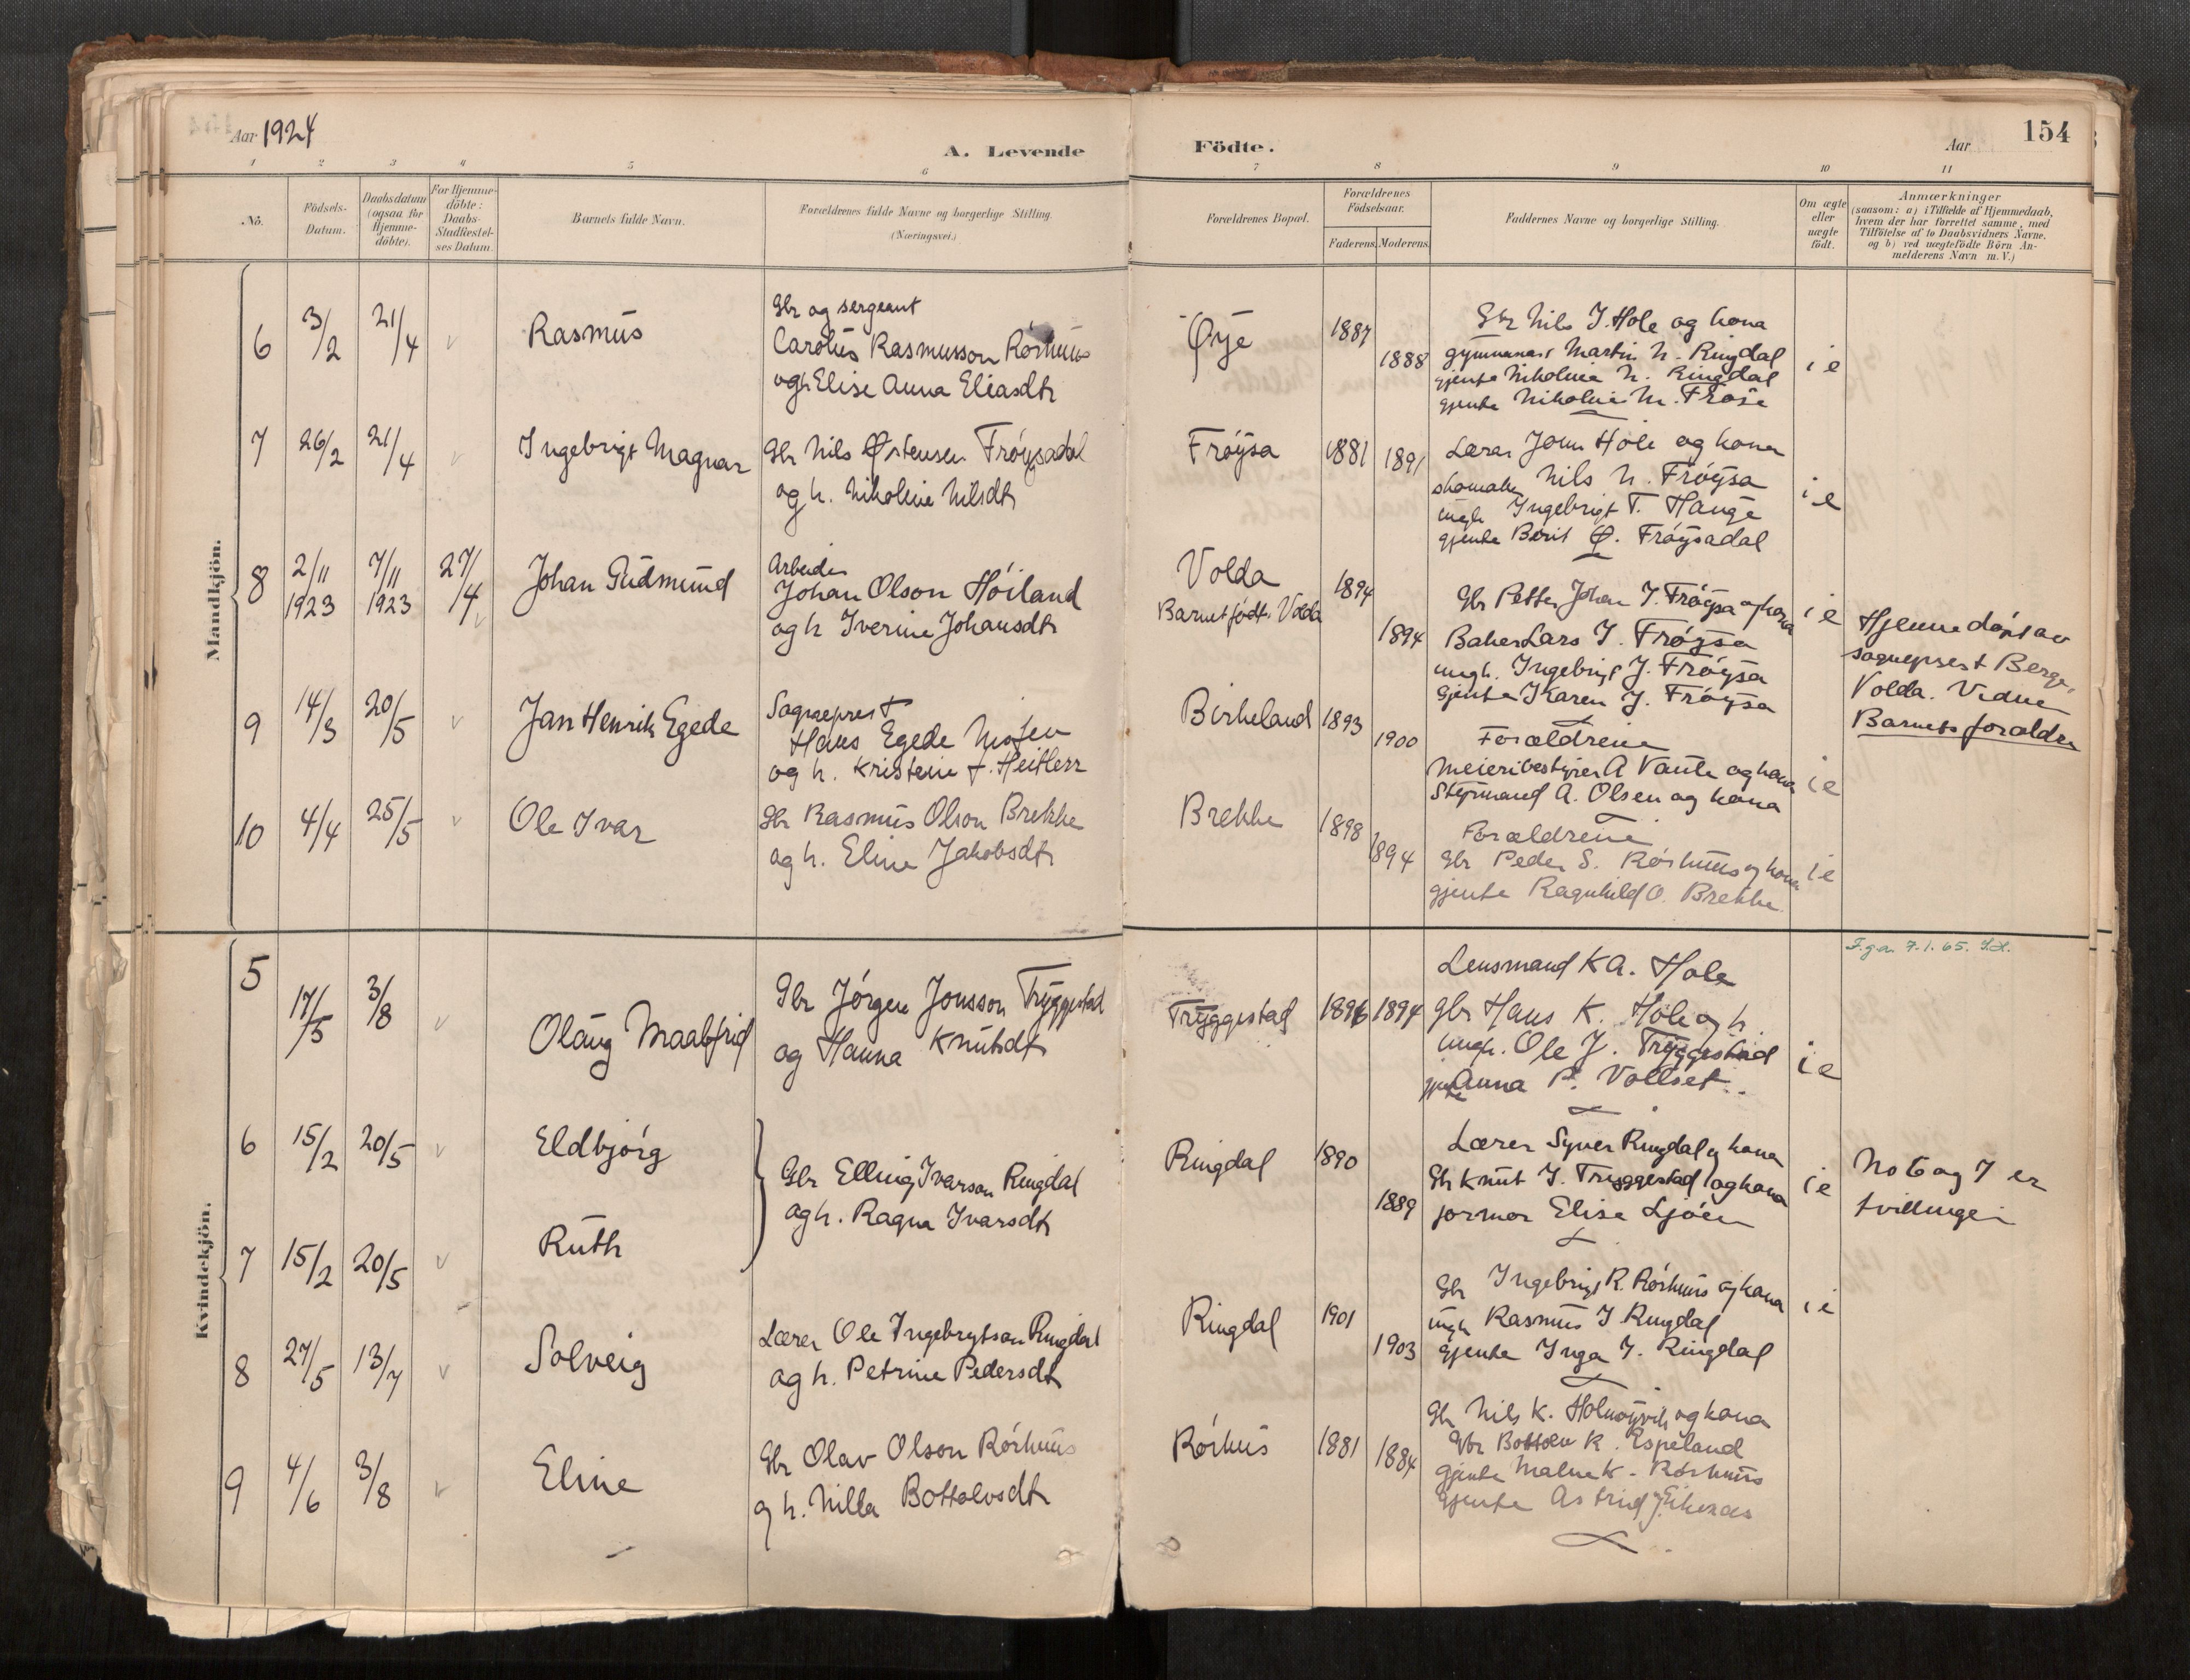 Aar 1924
A. Levende
Födte.
Aar
154
1 2 3 4 5 6 7 8 9 10 11
No.
Födsels-Datum.
Daabsdatum (ogsaa for Hjemme-döbte).
For Hjemme-döbte: Daabs-Stadfæstel-ses Datum.
Barnets fulde Navn.
Forældrenes fulde Navne og borgerlige Stilling.
(Næringsvei.)
Forældrenes Bopæl.
Forældrenes Födselsaar.
Faderens. Moderens.
Faddernes Navne og borgerlige Stilling.
Om ægte eller uægte födt.
Anmærkninger
(saasom: a) i Tilfælde af Hjemmedaab,
hvem der har forrettet samme, med
Tilföielse af to Daabsvidners Navne,
og b) ved uægtefödte Börn An-
melderens Navn m. V.)
Mandkjön.
6 3/2 21/4 Rasmus
Gbr og sergeant
Carolus Rasmusson Rörhuus
og h. Elise Anna Eliasdtr
Øye 1887 1888
Gbr Nils J. Hole og kona
gymnasiast Martin N. Ringdal
gjenta Nikoline N. Ringdal
gjenta Nikoline M. Fröise
i e
7 26/2 21/4 Ingebrigt Magnar
Gbr Nils Østensen Fröysadal
og h. Nikoline Nilsdtr
Fröysa 1881 1891
Lærar John Hole og kona
skomaker Nils N. Fröysa
ungk Ingebrigt T. Hauge
gjenta Berit Ø. Fröysadal
i e
8 2/11 1923 7/11 1923 27/4 Johan Gudmund
Arbeider
Johan Olson Höiland
og h Iverine Johansdtr
Volda
Barnet född i Volda
1894 1894
Gbr Petter Johan J. Fröysa og kona
Baker Lars J. Fröysa
ungk. Ingebrigt J. Fröysa
Gjenta Karen J. Fröysa
i e
Hjemmedöpt av
sogneprest Berge,
Volda. Vidne
Barnets foralder
9 14/3 20/5 Jan Henrik Egede
Sogneprest
Hans Egede Nissen
og h. Kristine f. Heitlerr
Birkeland 1893 1900
Forældrene
Meieribestyrer A Vaule og kona
Styrmand A. Olsen og kona
i e
10 4/4 25/5 Ole Ivar
Gbr Rasmus Olson Brekke
og h. Eline Jakobsdtr
Brekke 1898 1894
Forældrene
Gbr Peder S. Rörhuus og kona
gjenta Ragnhild O. Brekke
i e
Kvindekjön.
5 17/5 3/8 Olaug Maalfrid
Gbr Jörgen Jonsson Tryggestad
og Hanna Knutsdtr
Tryggestad 1896 1894
Lensmand K A. Hole
Gbr Hans K. Hole og h.
Ungk. Ole J. Tryggestad
gjenta Anna P. Vollset
i e
F.g.a. 7.1.65.
6 15/2 20/5 Eldbjörg
7 15/2 20/5 Ruth
Gbr Elling Ivarson Ringdal
og h. Ragna Ivarsdtr
Ringdal 1890 1889
Lærer Syver Ringdal og kona
Gbr Knut J. Tryggestad og kona
formor Elise Ljöen
i e
No 6 og 7 er
tvillinger
8 27/5 13/7 Solveig
Lærer Ole Ingebrigtson Ringdal
og h. Petrine Pedersdtr
Ringdal 1901 1903
Gbr Ingebrigt R. Rörhuus og kona
ungk Rasmus J Ringdal
gjenta Inga J. Ringdal
i e
9 4/6 3/8 Eline
Gbr Olav Olson Rörhuus
og h. Nilla Bottolvsdtr
Rörhus 1881 1884
Gbr Nils K. Holmöyvik og kona
Gbr Bottolv R. Espeland
gjenta Malene K. Rörhuus
gjenta Astrid J. Eikenæs